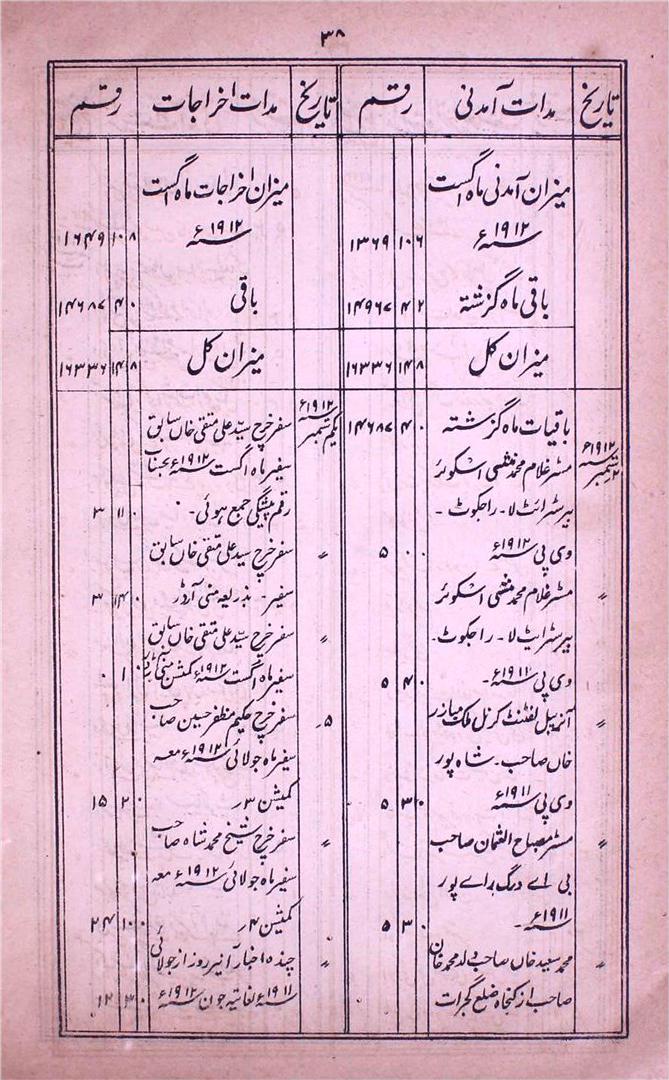 ۳۸
تاریخ مدات آمدنی رقم
میزان آمدنی ماہ اگست
۱۹۱۲ء ۶ ۱۰ ۱۳۶۹
باقی ماہ گزشتہ ۲ ۴ ۱۴۹۶۷
میزان کل ۸ ۱۴ ۱۶۳۳۶
باقیات ماہ گزشتہ ۰ ۴ ۱۴۶۸۷
۱۹۱۲ء ۲ ستمبر مسٹر غلام محمد منشی اسکوئر
بیرسٹرائٹ لا۔ راجکوٹ۔
وی پی ۱۹۱۲ء ۰ ۰ ۵
〃 مسٹر غلام محمد منشی اسکوئر
بیرسٹرایٹ لا۔ راجکوٹ۔
وی پی ۱۹۱۱ء۔ ۰ ۴ ۵
〃 آنریبل لفٹنٹ کرنل ملک مبارز
خاں صاحب۔ شاہ پور
وی پی ۱۹۱۱ء ۰ ۳ ۵
〃 مسٹر مصباح العثمان صاحب
بی اے درگ براے پور
۱۹۱۱ء۔ ۰ ۳ ۵
〃 محمد سعید خاں صاحب ولد محمد خان
صاحب از کنجاہ ضلع گجرات
تاریخ مدات اخراجات رقم
میزان اخراجات ماہ اگست
۱۹۱۲ء ۸ ۱۰ ۱۶۴۹
باقی ۰ ۴ ۱۴۶۸۷
میزان کل ۸ ۱۴ ۱۶۳۳۶
۱۹۱۲ء یکم ستمبر سفر خرچ سید علی متقی خاں سابق
سفیر ماہ اگست ۱۹۱۲ء بحساب
رقم پیشگی جمع ہوئی۔ ۰ ۱۱ ۳
〃 سفر خرچ سید علی متقی خاں سابق
سفیر۔ بذریعہ منی آرڈر ۰ ۱۴ ۳
〃 سفر خرچ سید علی متقی خاں سابق
سفیر ماہ اگست ۱۹۱۲ء کمیشن منی آرڈر ۰ ۱ ۰
۵ سفر خرچ حکیم مظفر حسین صاحب
سفیر ماہ جولائی ۱۹۱۲ء معہ
کمیشن ۳ر ۰ ۲ ۱۵
〃 سفر خرچ شیخ محمد شاہ صاحب
سفیر ماہ جولائی ۱۹۱۲ء معہ
کمیشن ۴ر ۰ ۱۰ ۲۴
〃 چندہ اخبار آبزرور از جولائی
۱۹۱۱ء لغایتہ جون ۱۹۱۲ء ۰ ۳ ۱۲